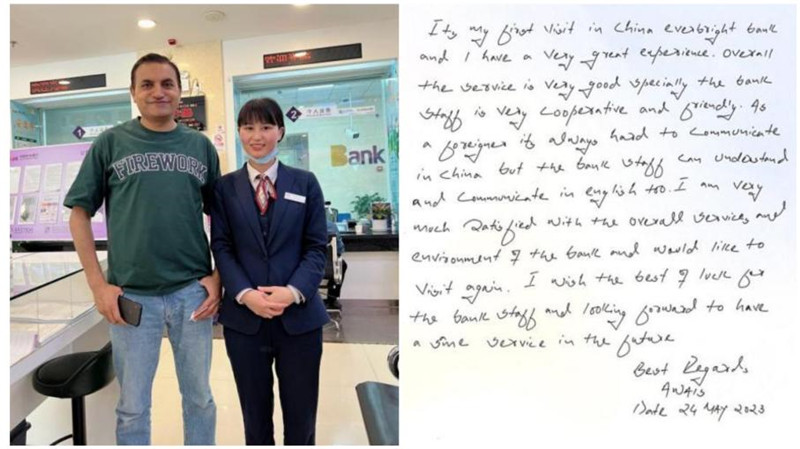 1
个人业务
2
个人业务
Bank
FIREWORK
Its my first visit in China everbright bank
and I have a very great experience. Overall
the service is very good specially the bank
staff is very cooperative and friendly. As
a foreigner its always hard to communicate
in China but the bank staff can understand
and communicate in english too. I am very
much satisfied with the overall services and
environment of the bank and would like to
visit again. I wish the best of luck for
the bank staff and looking forward to have
a same service in the future
Best Regards
AWAIS
Date 24 MAY 2023